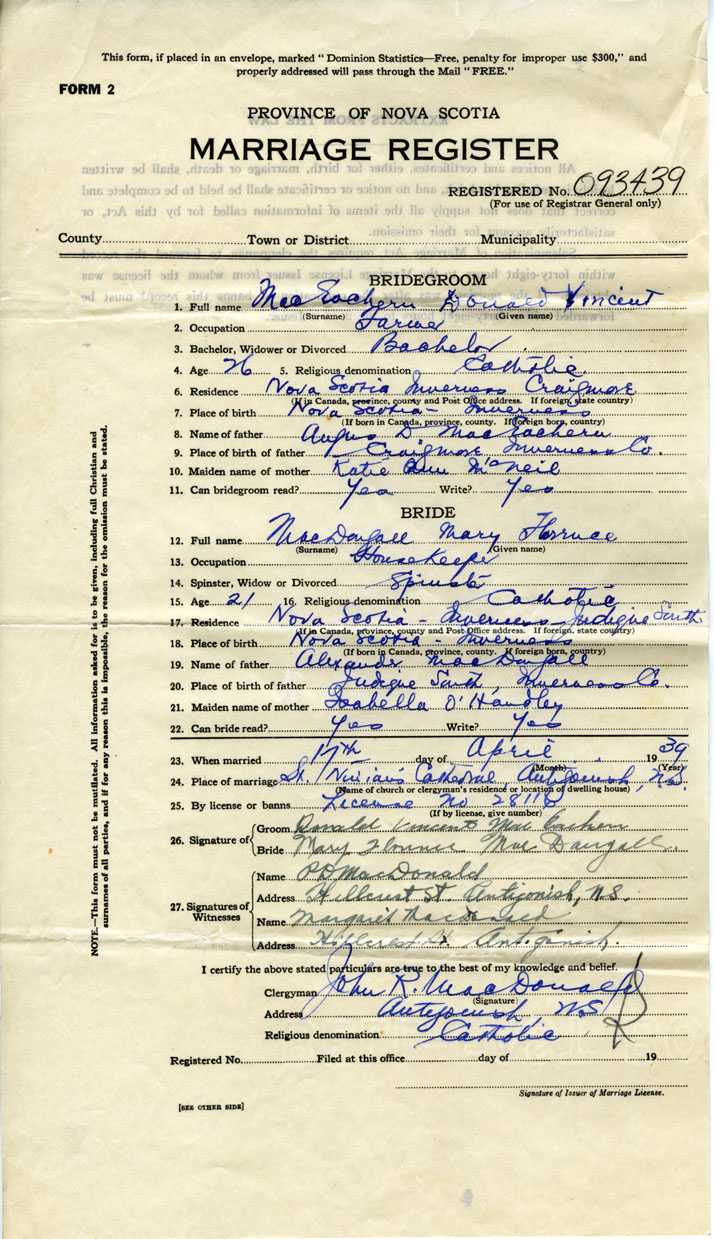 This form, if placed in an envelope, marked "Dominion Statistics—Free, penalty for improper use $300," and
properly addressed will pass through the Mail "FREE."
FORM 2
PROVINCE OF NOVA SCOTIA
MARRIAGE REGISTER
REGISTERED No. 093439
(For use of Registrar General only)
County Town or District Municipality
BRIDEGROOM
1. Full name MacEachern Donald Vincent
(Surname) (Given name)
2. Occupation Farmer
3. Bachelor, Widower or Divorced Bachelor
4. Age 26 5. Religious denomination Catholic
6. Residence Nova Scotia Inverness Craigmore
(If in Canada, province, county and Post Office address. If foreign, state country)
7. Place of birth Nova Scotia - Inverness
(If born in Canada, province, county. If foreign born, country)
8. Name of father Angus D MacEachern
9. Place of birth of father Craigmore Inverness Co.
10. Maiden name of mother Katie Ann McNeil
11. Can bridegroom read? Yes Write? Yes
BRIDE
12. Full name MacDougall Mary Florence
(Surname) (Given name)
13. Occupation Housekeeper
14. Spinster, Widow or Divorced Spinster
15. Age 21 16. Religious denomination Catholic
17. Residence Nova Scotia - Inverness - Judique South
(If in Canada, province, county and Post Office address. If foreign, state country)
18. Place of birth Nova Scotia - Inverness
(If born in Canada, province, county. If foreign born, country)
19. Name of father Alexander MacDougall
20. Place of birth of father Judique South, Inverness Co.
21. Maiden name of mother Isabella O'Handley
22. Can bride read? Yes Write? Yes
23. When married 17th day of April 1939
(Month) (Year)
24. Place of marriage St. Ninian's Cathedral, Antigonish, N.S.
(Name of church or clergyman's residence or location of dwelling house)
25. By license or banns License No 28118
(If by license, give number)
26. Signature of
Groom Donald Vincent MacEachern
Bride Mary Florence MacDougall
27. Signatures of Witnesses
Name PD MacDonald
Address Hillcrest St. Antigonish, N.S.
Name Margaret MacDonald
Address Hillcrest St. Antigonish.
I certify the above stated particulars are true to the best of my knowledge and belief.
Clergyman John R. MacDonald
(Signature)
Address Antigonish, N.S.
Religious denomination Catholic
Registered No. Filed at this office day of 19
Signature of Issuer of Marriage License.
[SEE OTHER SIDE]
NOTE.—This form must not be mutilated. All information asked for is to be given, including full Christian and
surnames of all parties, and if for any reason this is impossible, the reason for the omission must be stated.